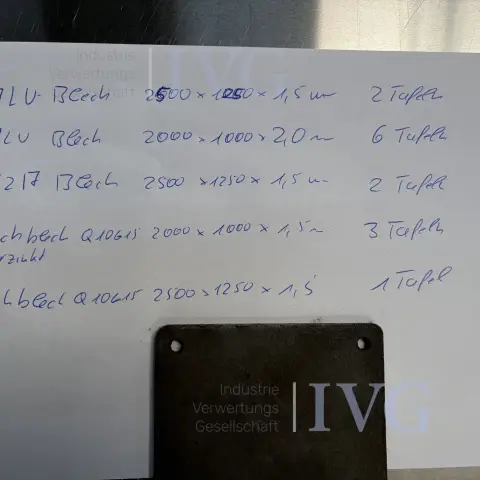 Industrie
Verwertungs
IVG
LU-Blech 2500 x 1250 x 1,5 mm 2 Tafeln
LU Blech 2000 x 1000 x 2,0 m 6 Tafeln
217 Blech 2500 x 1250 x 1,5 mm 2 Tafeln
chblech Q10615 2000 x 1000 x 1,5 m 3 Tafeln
rzinkt
hblech Q10615 2500 x 1250 x 1,5 1 Tafel
Industrie
Verwertungs
Gesellschaft
IVG